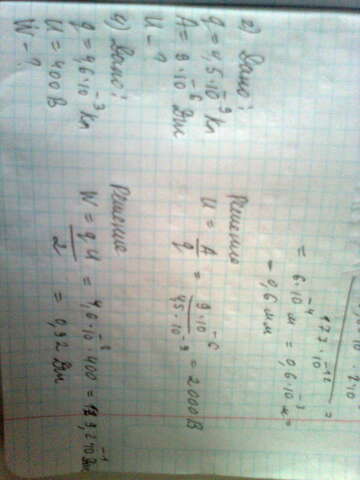 = 6·10⁻⁴ м = 0,6·10⁻³ м =
= 0,6 мм
2) Дано:
q = 4,5·10⁻⁹ Кл
A = 9·10⁻⁶ Дж
U - ?
Решение
U = A/q = 9·10⁻⁶/4,5·10⁻⁹ = 2000 В
4) Дано:
q = 4,6·10⁻³ Кл
U = 400 В
W - ?
Решение
W = q·U/2 = · 400 =
= 0,92 Дж